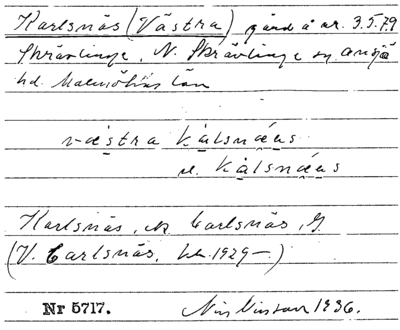 Karlsnäs (Västra) gård å nr. 3.5.7.9
Skrävlinge, N. Skrävlinge sn, Oxie
hd. Malmöhus län
västra kålsnäas
el. kålsnäas
Karlsnäs, ek Carlsnäs, G
(V. Carlsnäs, 1929—)
Nr 5717. 1936.